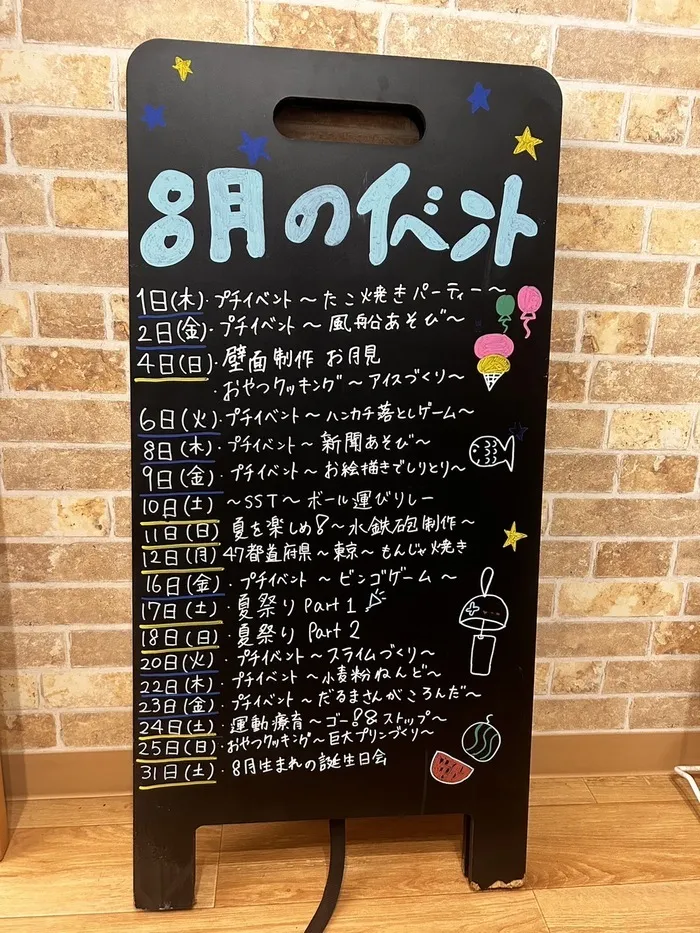 8月のイベント
1日(木)・プチイベント〜たこ焼きパーティー〜
2日(金)・プチイベント〜風船あそび〜
4日(日)・壁面制作 お月見
・おやつクッキング〜アイスづくり〜
6日(火)・プチイベント〜ハンカチ落としゲーム〜
8日(木)・プチイベント〜新聞あそび〜
9日(金)・プチイベント〜お絵描きでしりとり〜
10日(土) 〜SST〜ボール運びリレー
11日(日) 夏を楽しめ!〜水鉄砲制作〜
12日(月) 47都道府県〜東京〜もんじゃ焼き
16日(金)・プチイベント〜ビンゴゲーム〜
17日(土)・夏祭り Part 1
18日(日)・夏祭り Part 2
20日(火)・プチイベント〜スライムづくり〜
22日(木)・プチイベント〜小麦粉ねんど〜
23日(金)・プチイベント〜だるまさんがころんだ〜
24日(土)・運動療育〜ゴー!!ストップ〜
25日(日)・おやつクッキング〜巨大プリンづくり〜
31日(土)・8月生まれの誕生日会